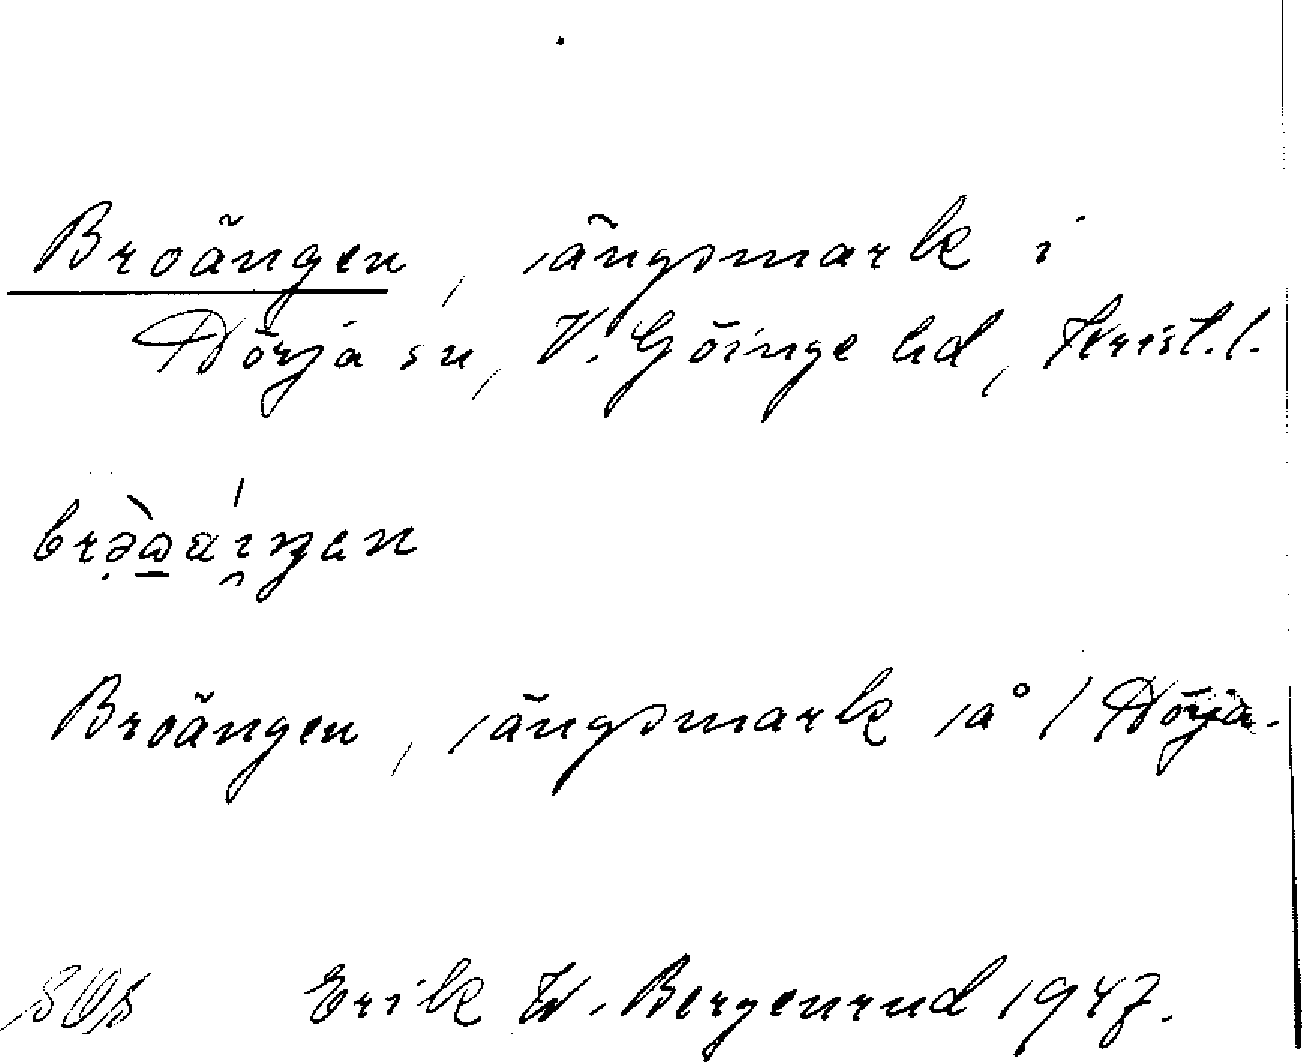 Broängen, ängsmark i
Nörja sn, V. Göinge hd, Krist. l.
Broängen, ängsmark å 1 Nörja.
Erik W. Bergenrud 1947.